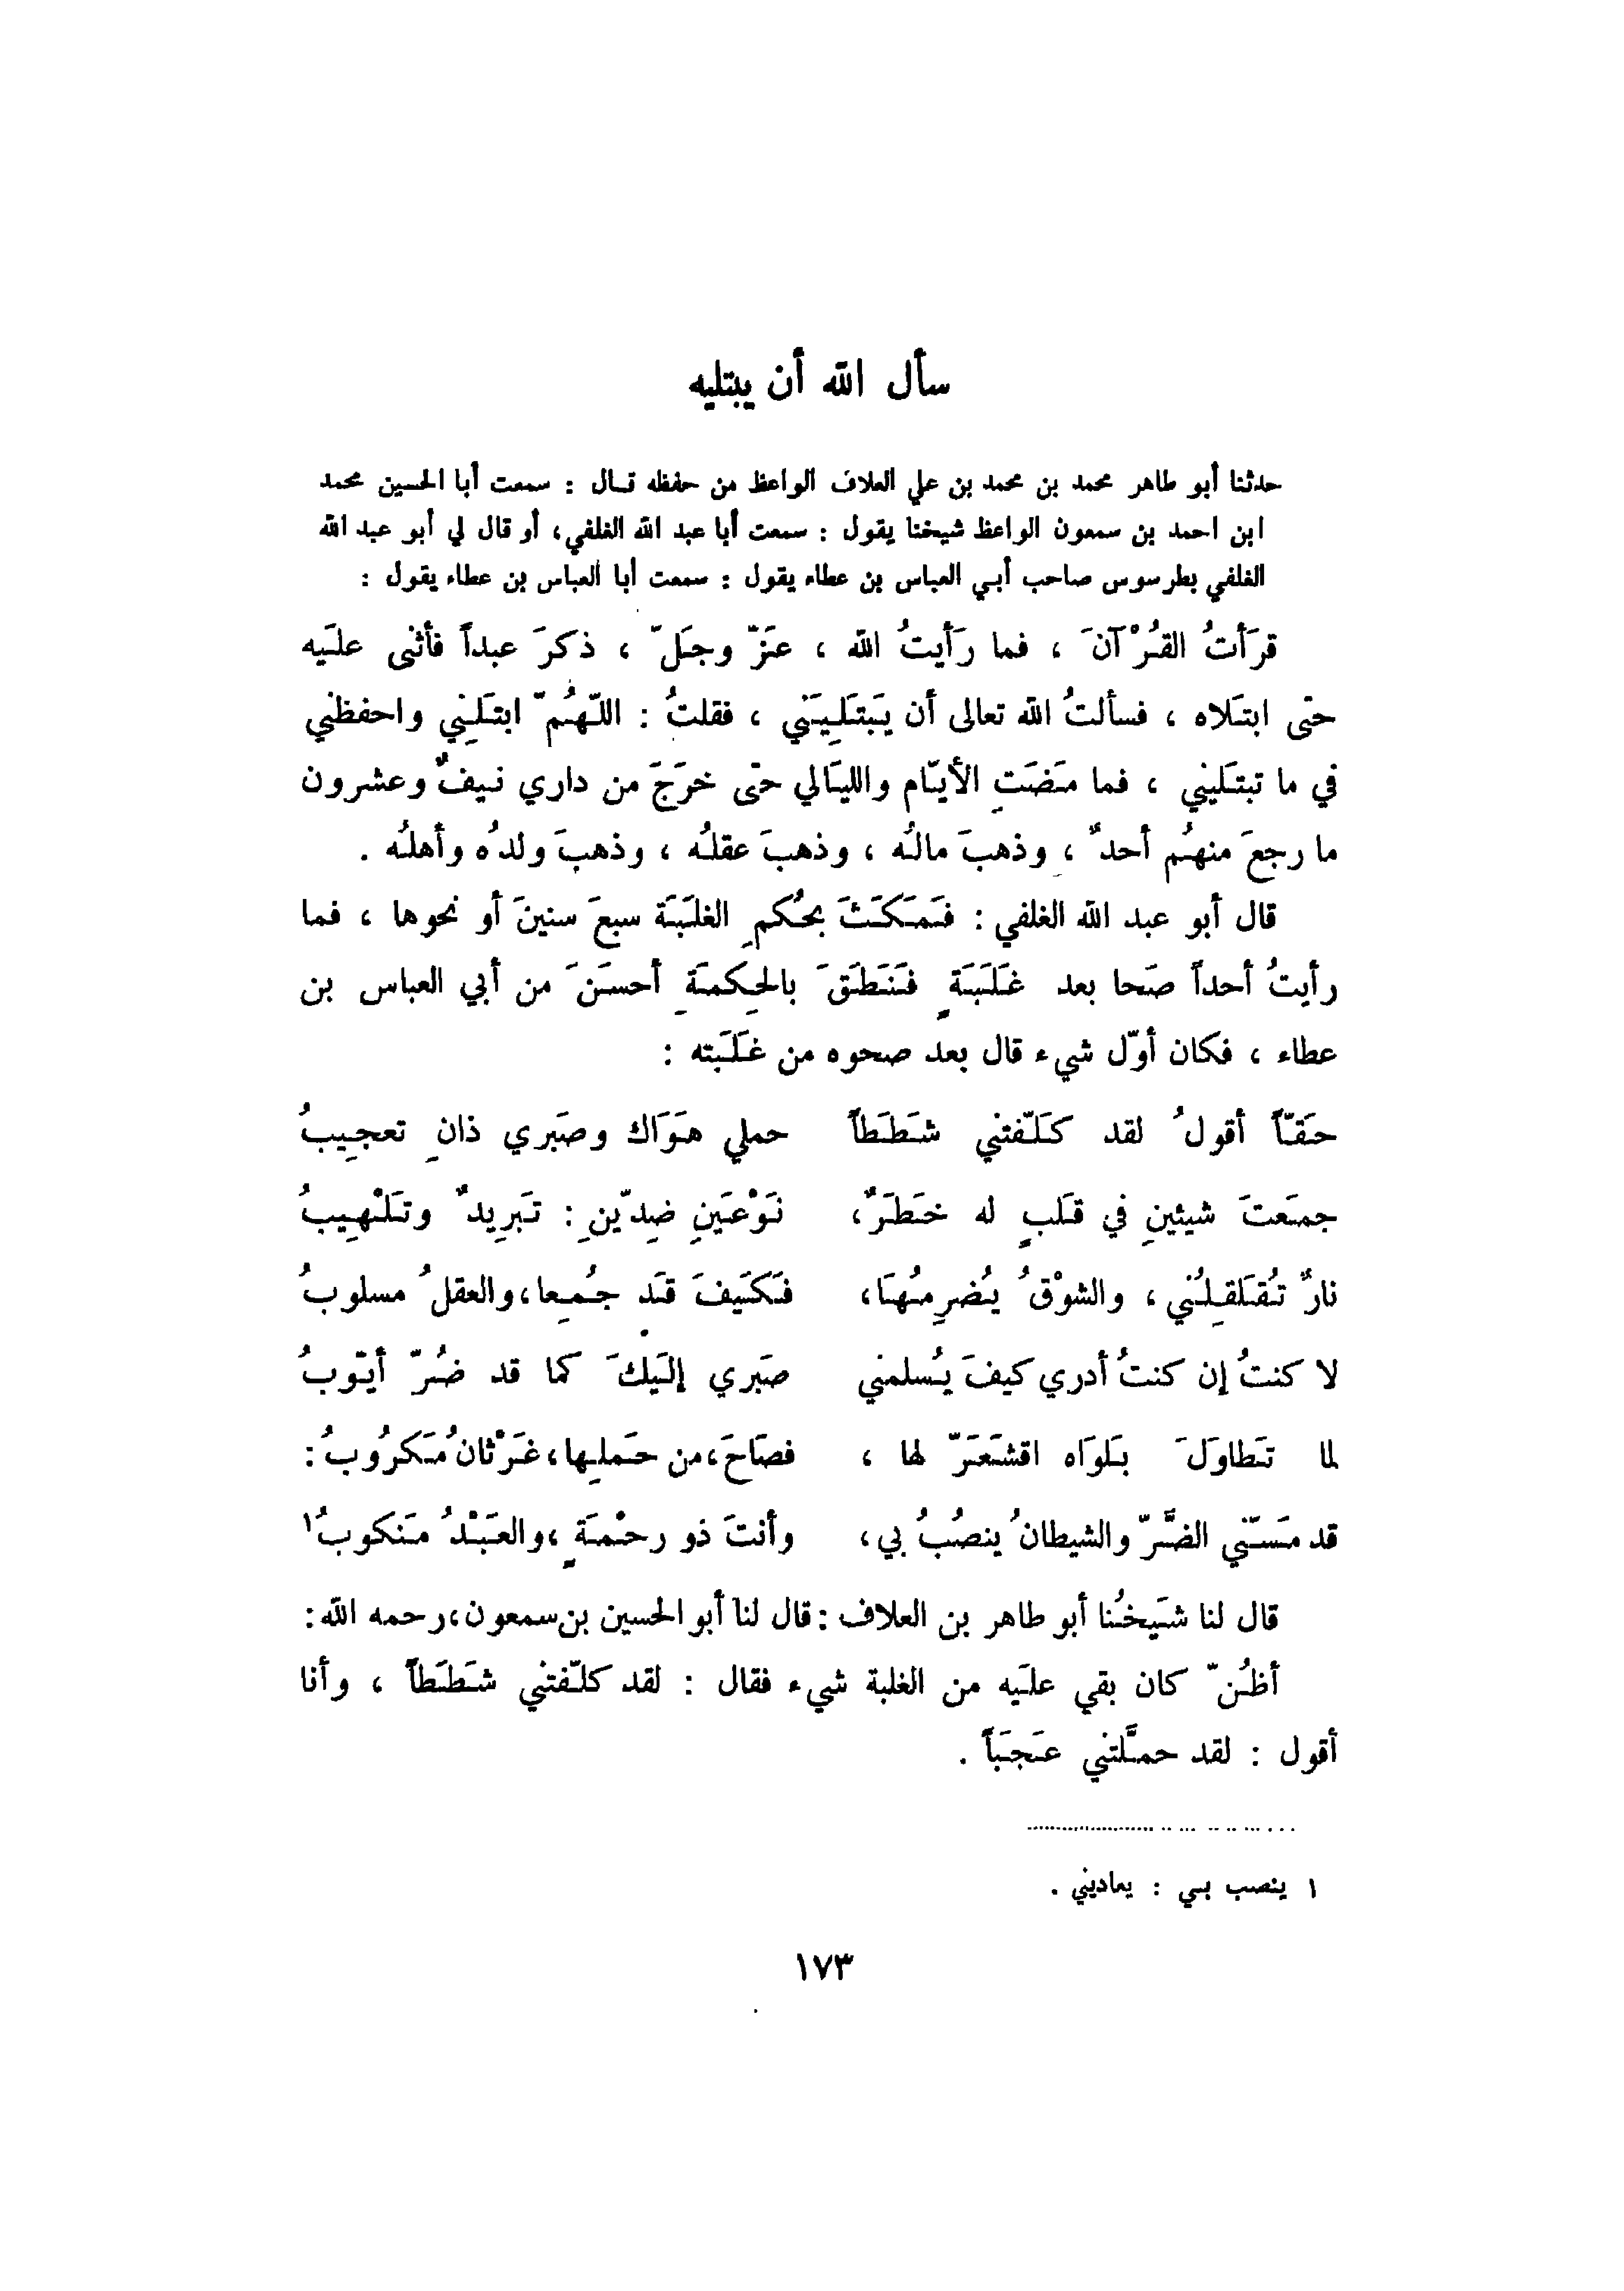 سأل الله أن يبتليه
حدثنا أبو طاهر محمد بن محمد بن علي العلاف الواعظ من حفظه قـال : سمعت أبا الحسين محمد
ابن احمد بن سمعون الواعظ شيخنا يقول : سمعت أبا عبد الله الغلفي، أو قال لي أبو عبد الله
الغلفي بطرسوس صاحب أبـي العباس بن عطاء يقول : سمعت أبا العباس بن عطاء يقول :
قرَأتُ القُرْآنَ ، فما رَأيتُ الله ، عَزّ وجَلّ ، ذكرَ عبداً فأثنى علَيه
حتى ابتَلاه ، فسألتُ الله تعالى أن يَبتَلِيَني ، فقلتُ : اللّهُمّ ابتَلِني واحفظني
في ما تبتَليني ، فما مَضَتِ الأيّام والليَالي حتى خرَجَ من داري نيفٌ وعشرون
ما رجعَ منهُم أحدٌ ، وذهبَ مالُه ، وذهبَ عقلُه ، وذهبَ ولدُه وأهلُه .
قال أبو عبد الله الغلفي : فَمَكَثَ بحُكمِ الغلَبَة سبعَ سنينَ أو نحوها ، فما
رأيتُ أحداً صَحا بعد غَلَبَةٍ فنَطَقَ بالحِكمَةِ أحسَنَ من أبي العباس بن
عطاء ، فكان أوّل شيء قال بعد صحوه من غَلَبته :
حَقّاً أقولُ لقد كَلّفتني شَطَطاً حملي هَوَاك وصَبري ذانِ تعجِيبُ
جمَعتَ شيئينِ في قَلبٍ له خَطَرٌ، نَوْعَينِ ضِدّينِ : تَبرِيدٌ وتَلْهِيبُ
نارٌ تُقَلقِلُني ، والشوْقُ يُضرِمُهَا، فكَيفَ قَد جُمِعا،والعقلُ مسلوبُ
لا كنتُ إن كنتُ أدري كيفَ يُسلمني صَبري إلَيكَ كما قد ضُرّ أيّوبُ
لما تَطاوَلَ بَلوَاه اقشَعَرّ لها ، فصَاحَ،من حَملِها،غَرْثانُ مَكرُوبُ :
قد مَسّني الضّرّ والشيطانُ ينصُبُ بي، وأنتَ ذو رحْمَةٍ،والعَبْدُ مَنكوبُ١
قال لنا شَيخُنا أبو طاهر بن العلاف : قال لنا أبو الحسين بن سمعون،رحمه الله :
أظُنّ كان بقي علَيه من الغلبة شيء فقال : لقد كلّفتني شَطَطاً ، وأنا
أقول : لقد حمّلتني عَجَباً .
١ ينصب بـي : يعاديني .
١٧٣